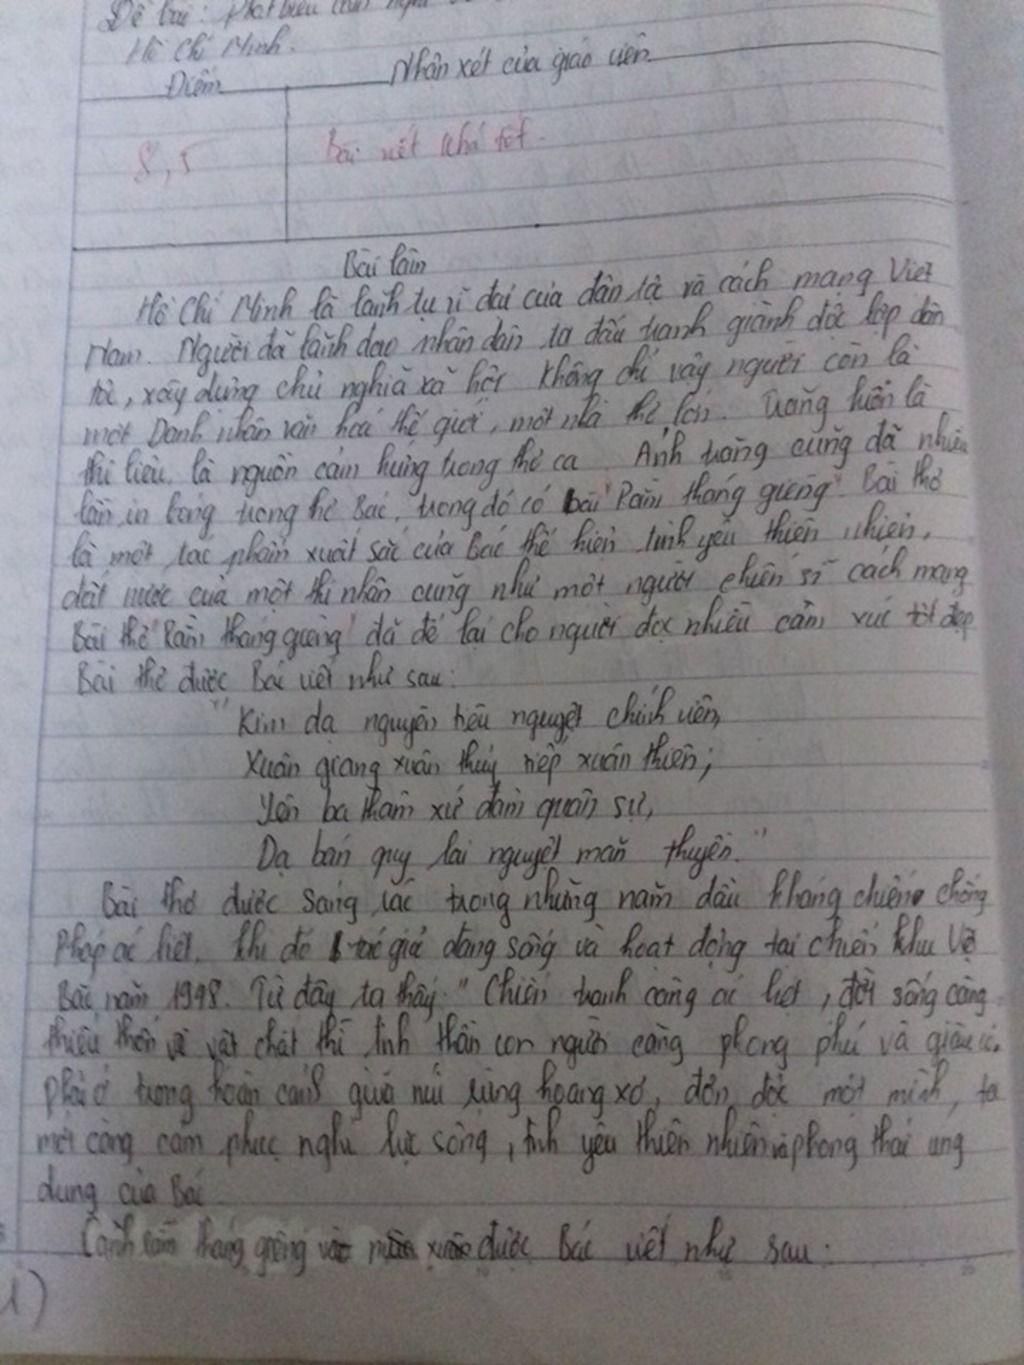 Đề bài: Phát biểu cảm nghĩ
Hồ Chí Minh.
Điểm Nhận xét của giáo viên
8,5 Bài viết khá tốt.
Bài làm
Hồ Chí Minh là lãnh tụ vĩ đại của dân tộc và cách mạng Việt
Nam. Người đã lãnh đạo nhân dân ta đấu tranh giành độc lập dân
tộc, xây dựng chủ nghĩa xã hội không chỉ vậy người còn là
một Danh nhân văn hoá thế giới, một nhà thơ lớn. Trăng luôn là
thi liệu, là nguồn cảm hứng trong thơ ca. Ánh trăng cũng đã nhiều
lần in bóng trong thơ Bác, trong đó có bài "Rằm tháng giêng". Bài thơ
là một tác phẩm xuất sắc của Bác thể hiện tình yêu thiên nhiên,
đất nước của một thi nhân cũng như một người chiến sĩ cách mạng
Bài thơ "Rằm tháng giêng" đã để lại cho người đọc nhiều cảm xúc tốt đẹp
Bài thơ được Bác viết như sau:
"Kim dạ nguyên tiêu nguyệt chính viên,
Xuân giang xuân thủy tiếp xuân thiên;
Yên ba thâm xứ đàm quân sự,
Dạ bán quy lai nguyệt mãn thuyền."
Bài thơ được sáng tác trong những năm đầu kháng chiến chống
Pháp ác liệt. Khi đó tác giả đang sống và hoạt động tại chiến khu Việt
Bắc năm 1948. Từ đây ta thấy "Chiến tranh càng ác liệt, đời sống càng
thiếu thốn về vật chất thì tinh thần con người càng phong phú và giàu có.
Phải ở trong hoàn cảnh giữa núi rừng hoang sơ, đơn độc một mình, ta
mới càng cảm phục nghị lực sống, tình yêu thiên nhiên và phong thái ung
dung của Bác
Cảnh rằm tháng giêng được Bác viết như sau:
1)